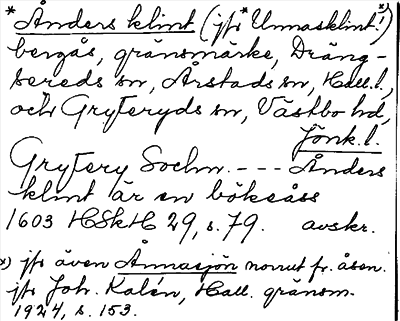 * Ånders klint (jfr * Unnasklint!) x)
bergås, gränsmärke, Dräng-
sereds sn, Årstads sn, Hall. l.,
och Gryteryds sn, Västbo hd,
Jönk. l.
Grytery Sochn. - - - Ånders
klint är en bökeåss
1603 HSkH 29, s. 79. avskr.
x) jfr även Ånnasjön norrut fr. åsen.
jfr Joh. Kalén, Hall. gränsm.
1924, s. 153.